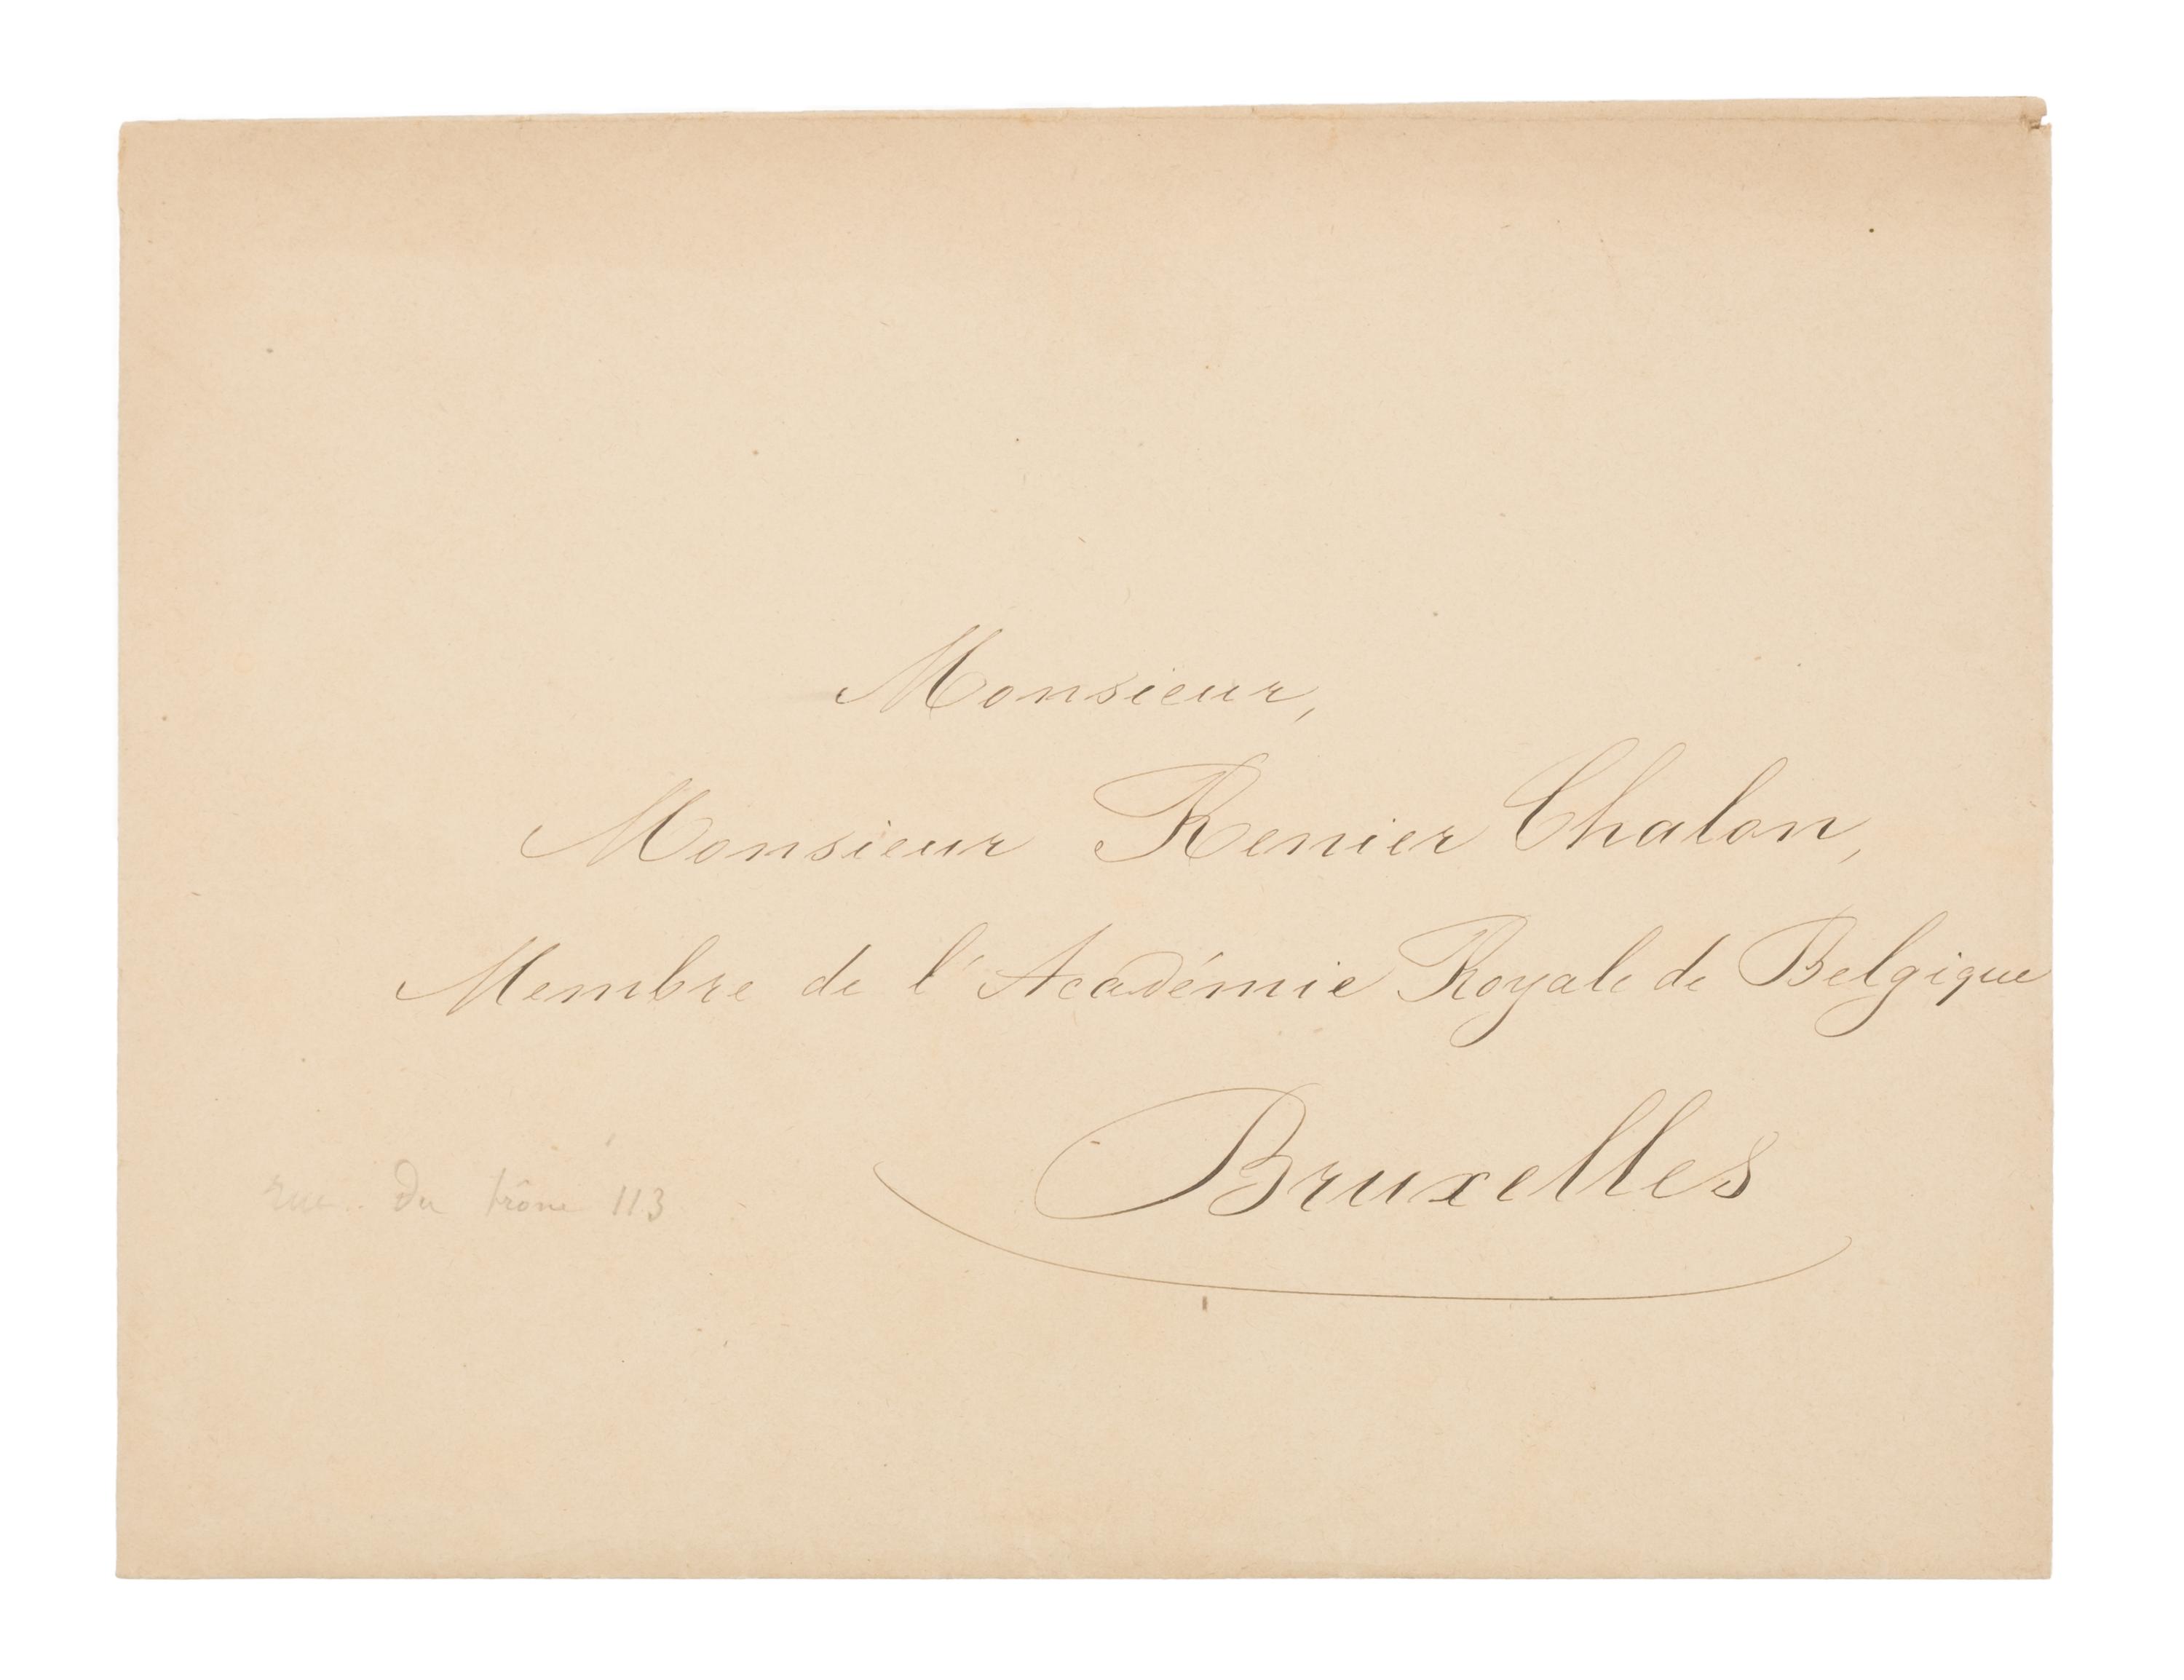 Monsieur,
Monsieur Renier Chalon,
Membre de l'Académie Royale de Belgique
Bruxelles
rue du trône 113